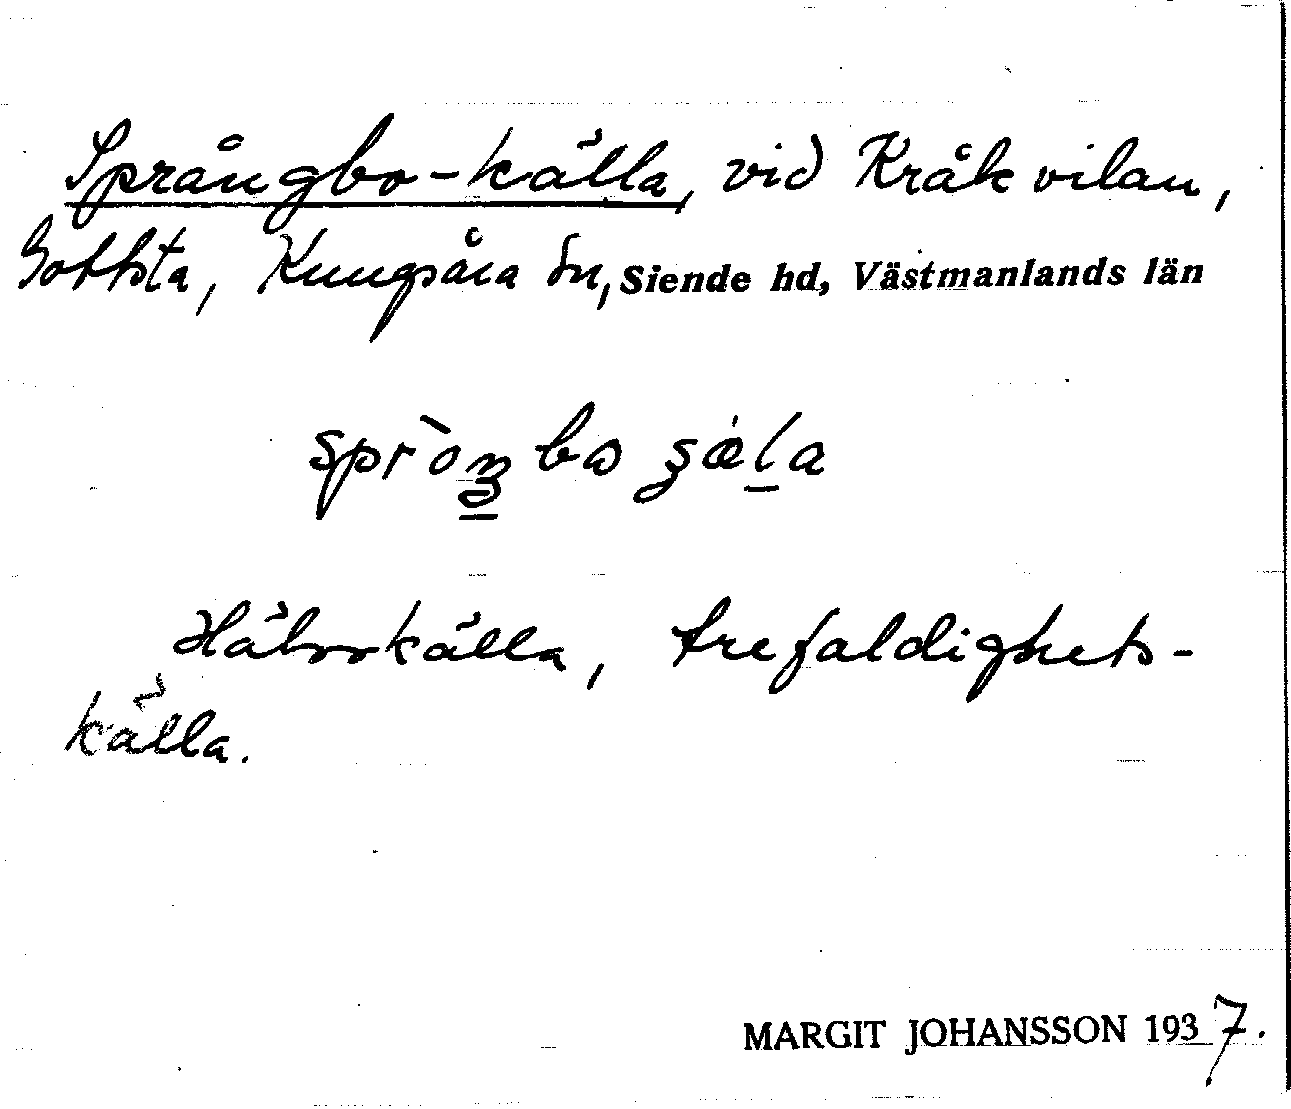 Språngbo-källa, vid Kråkvilan,
Gottsta, Kungsåra sn, Siende hd, Västmanlands län
Hälsokälla, trefaldighets-
källa.
MARGIT JOHANSSON 1937.